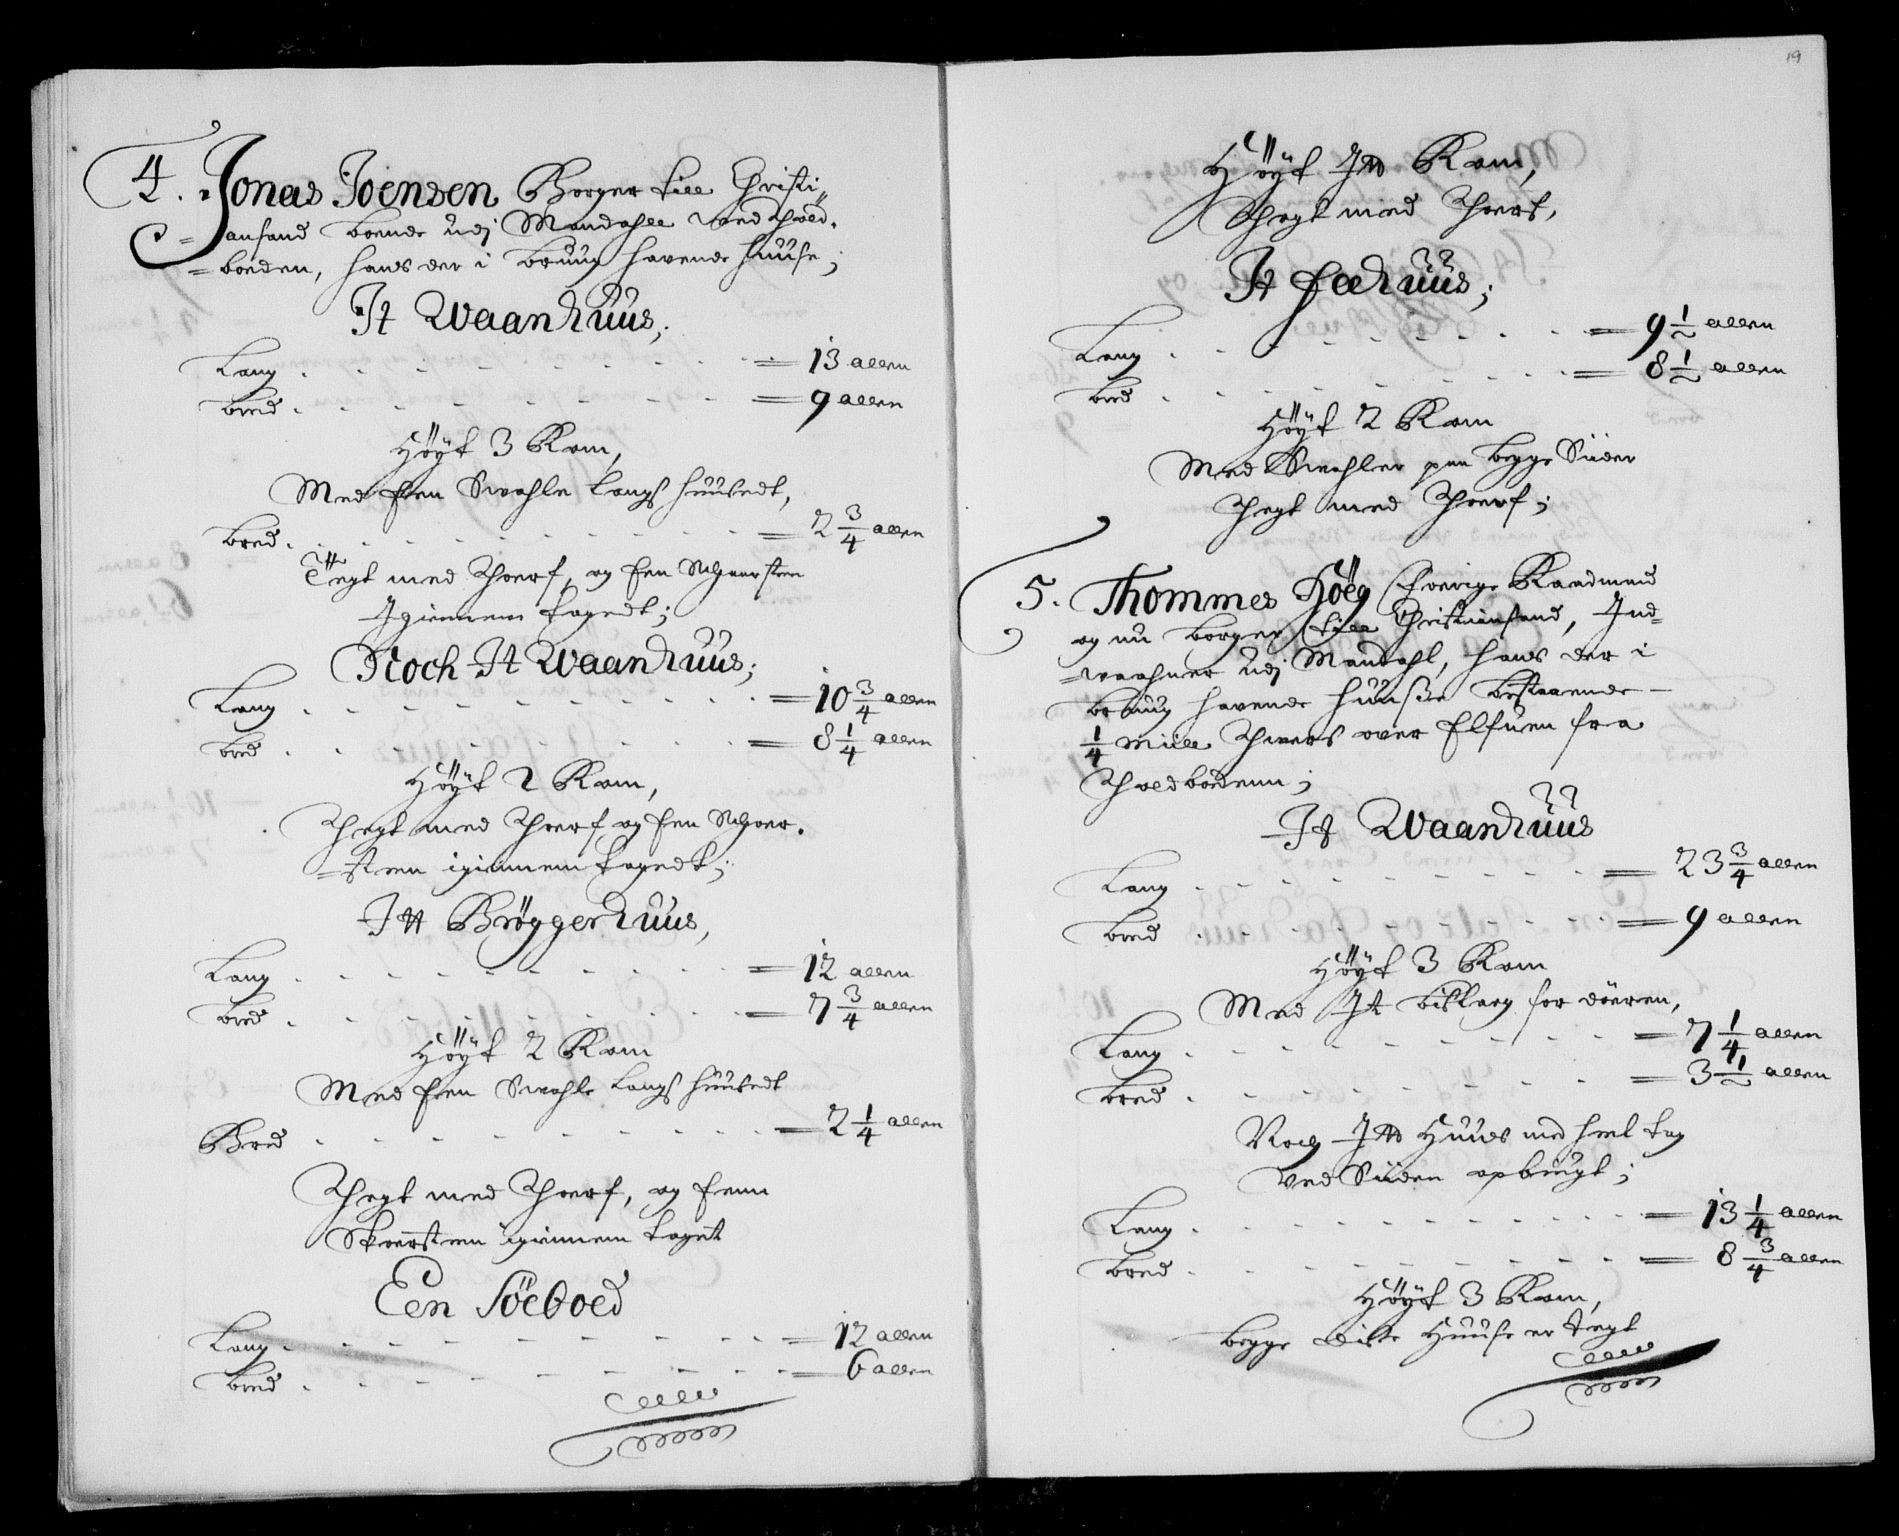 4. Jonas Joensen Borger till Christi-
=ansand boende udj Mandahll ved Thold-
=boeden, hans der i bruug havende huuse;
It Waanhuus;
Lang . . . = 13 allen
bred . . . = 9 allen
Höyt 3 Rom,
Med Een Swahle langs huusedt,
bred . . . = 2 3/4 allen
Tegt med Thoerf, og Een Skaarsten
Igiennem taget;
Noch It Waanhuus;
Lang . . . = 10 3/4 allen
bred . . . = 8 1/4 allen
Höyt 2 Rom,
Thegt med Thoerf og Een Skoer-
=sten igiennem tagedt;
Itt Bröggerhuus,
Lang . . . = 12 allen
bred . . . = 7 3/4 allen
Höyt 2 Rom
Med Een Swahle langs huusedt
Bred . . . = 2 1/4 allen
Thegt med Thoerf, og Eenn
Skoersten igiennem taget
Een Söeboed
Lang . . . = 12 allen
bred . . . = 6 allen
19
Höyt Itt Rom,
Thegt med Thoerf,
It Fæehuus;
Lang . . . = 9 1/2 allen
bred . . . = 8 1/2 allen
Höyt 2 Rom
Med Swahler paa begge Siider
Thegt med Thoerf;
5. Thommes Höeg forrige Raadmand
og nu borger till Christiansand, Ind-
=waahner udj Mandahl, hans der i
bruug havende huuse bestaaende
1/4 Miill Thvers over Elfuen fra
Tholdbodenn;
It Waanhuus
Lang . . . = 23 3/4 allen
bred . . . = 9 allen
Höyt 3 Rom
Med It bislag for dörren,
Lang . . . = 7 1/4 allen
bred . . . = 3 1/2 allen
Noch Itt Huus med heel tag
ved Siiden opbiugt;
Lang . . . = 13 1/4 allen
bred . . . = 8 3/4 allen
Höyt 3 Rom,
begge disse Huuse er tegt